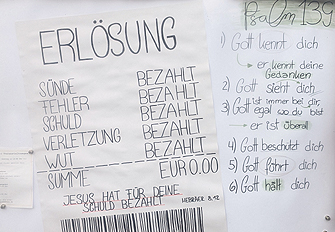 ERLÖSUNG
SÜNDE BEZAHLT
FEHLER BEZAHLT
SCHULD BEZAHLT
VERLETZUNG BEZAHLT
WUT BEZAHLT
SUMME EUR 0.00
JESUS HAT FÜR DEINE
SCHULD BEZAHLT HEBRÄER 8,12
Psalm 139
1) Gott kennt dich
→ er kennt deine
Gedanken
2) Gott sieht dich
3) Gott ist immer bei dir,
egal wo du bist
→ er ist überall
4) Gott beschützt dich
5) Gott führt dich
6) Gott hält dich